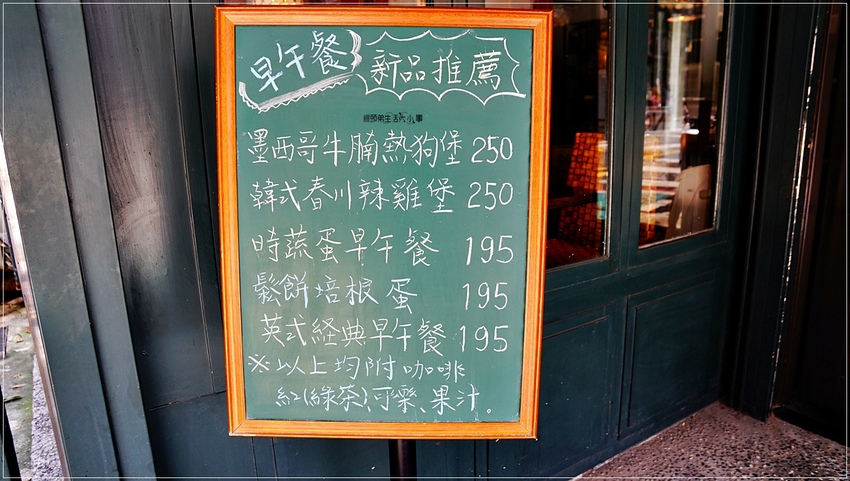 早午餐 新品推薦
饅頭弟生活大小事
墨西哥牛腩熱狗堡 250
韓式春川辣雞堡 250
時蔬蛋早午餐 195
鬆餅培根蛋 195
英式経典早午餐 195
※以上均附咖啡
紅(綠茶)、可樂、果汁。